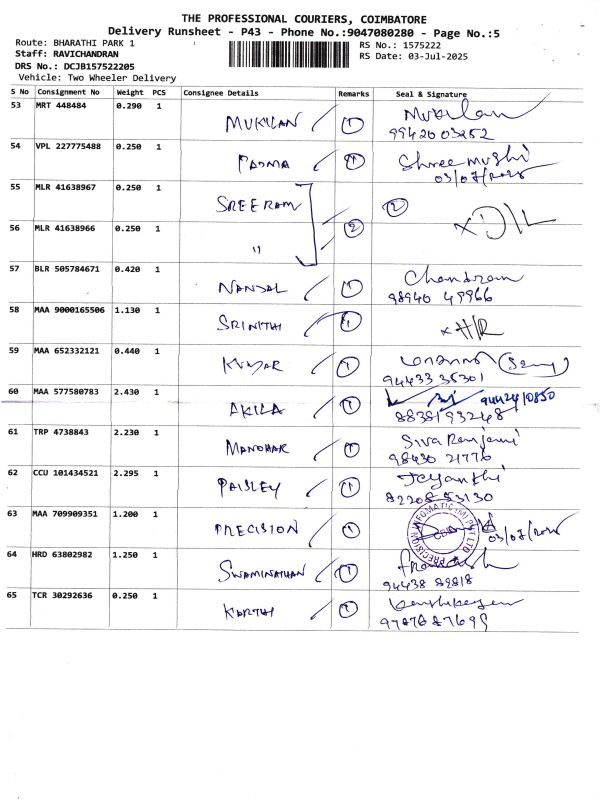 THE PROFESSIONAL COURIERS, COIMBATORE
Delivery Runsheet - P43 - Phone No.:9047080280 - Page No.:5
Route: BHARATHI PARK 1 RS No.: 1575222
Staff: RAVICHANDRAN RS Date: 03-Jul-2025
DRS No.: DCJB157522205
Vehicle: Two Wheeler Delivery
S No Consignment No Weight PCS Consignee Details Remarks Seal & Signature
53 MRT 448484 0.290 1 MUKILAN 1 Mukilan
9942003252
54 VPL 227775488 0.250 1 PADMA 1 Shree
03/07/2025
55 MLR 41638967 0.250 1 SREERAM 2
56 MLR 41638966 0.250 1 " 2 x D/L
57 BLR 505784671 0.420 1 1 Chandram
98940 49966
58 MAA 9000165506 1.130 1 SRINITHI 1 x H/R
59 MAA 652332121 0.440 1 KUMAR 1
94433 35301
60 MAA 577580783 2.430 1 AKILA 1
61 TRP 4738843 2.230 1 MANOHAR 1 Siva Ranjani
98430 21776
62 CCU 101434521 2.295 1 PAISLEY 1 Jeyanthi
82208 53130
63 MAA 709909351 1.200 1 PRECISION 1 PRECISION INFOMATIC (M) PVT LTD CBE 03/07/2025
64 HRD 63802982 1.250 1 SWAMINATHAN 1
94438 89818
65 TCR 30292636 0.250 1 KARTHI 1